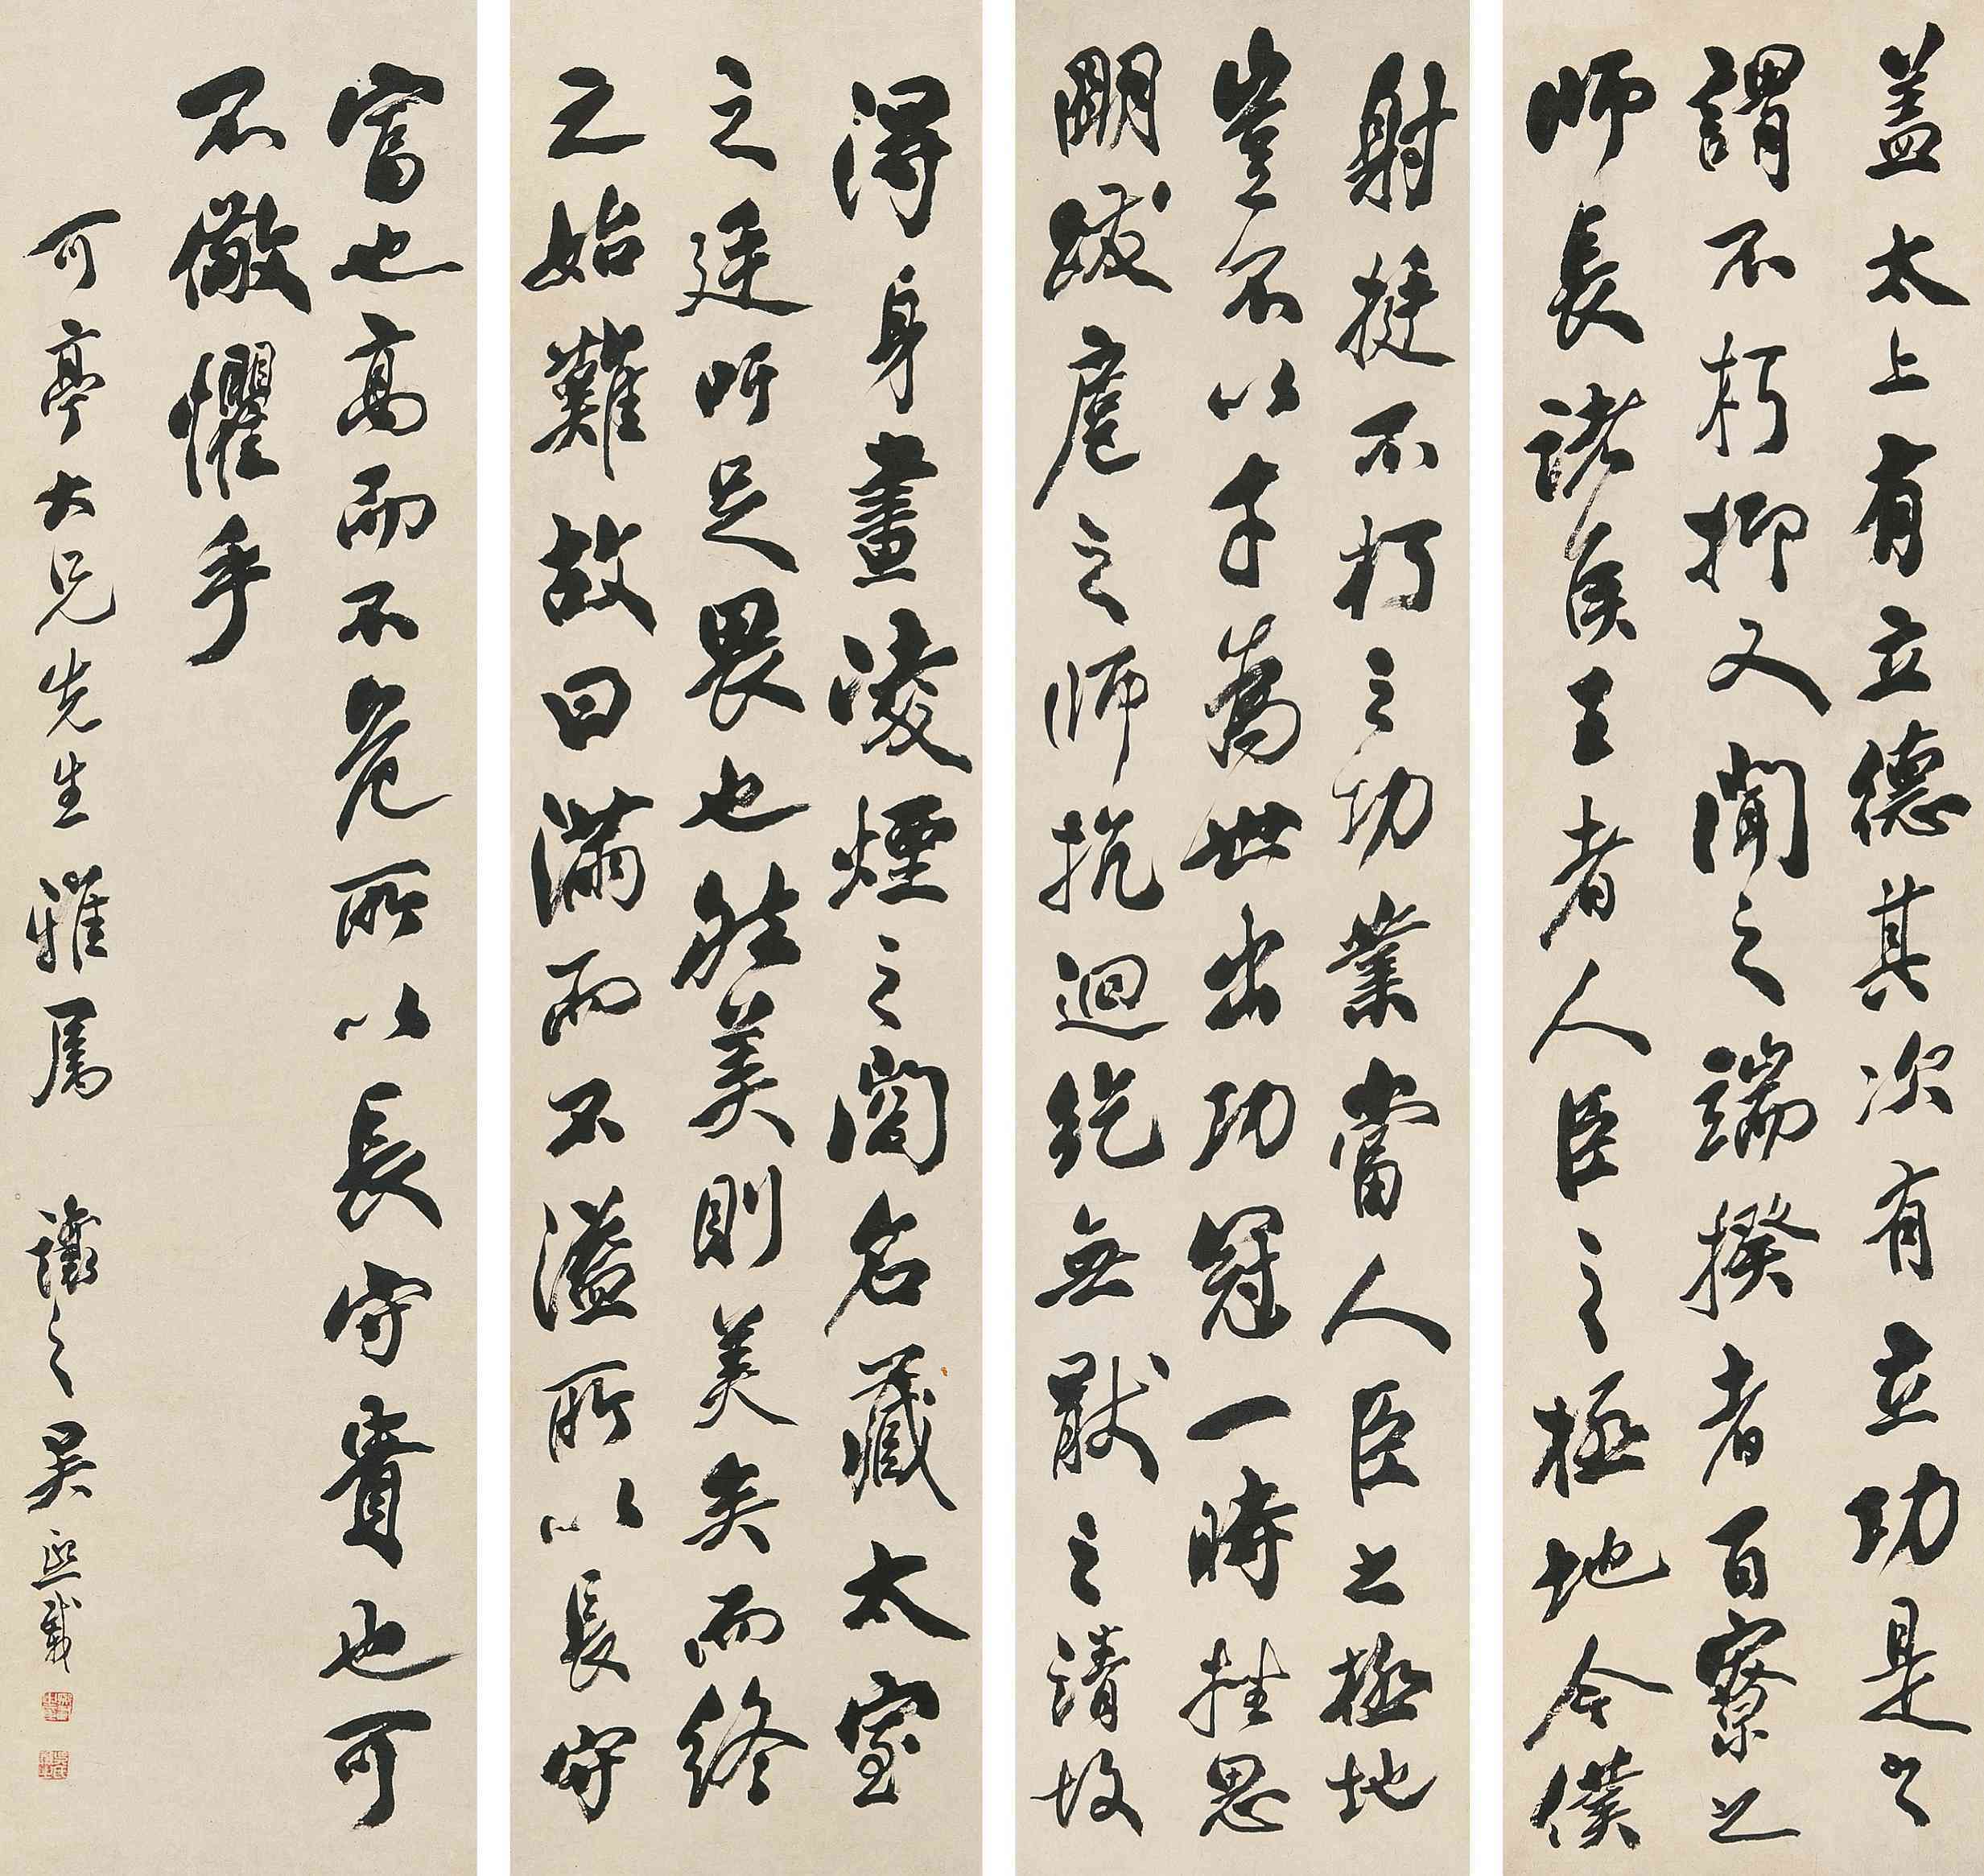 盖太上有立德其次有立功是之
謂不朽抑又聞之端揆者百寮之
師長諸侯王者人臣之極地今僕
射挺不朽之功業當人臣之極地
豈不以才為世出功冠一時挫思
明跋扈之師抗迴紇無猒之請故
得身畫凌煙之閣名藏太室
之廷吁足畏也然美則美矣而終
之始難故曰滿而不溢所以長守
富也高而不危所以長守貴也可
不儆懼乎
可亭大兄先生雅屬 讓之吳熙載